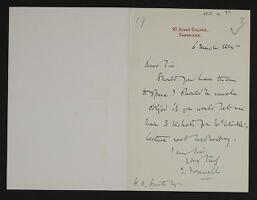 19
ST. JOHN'S COLLEGE,
CAMBRIDGE.
6 March 1885
Dear Sir
Should you have them
to spare I should be much
obliged if you would let me
have 3 tickets for
lecture next Wednesday.
I am Sir
Yours truly